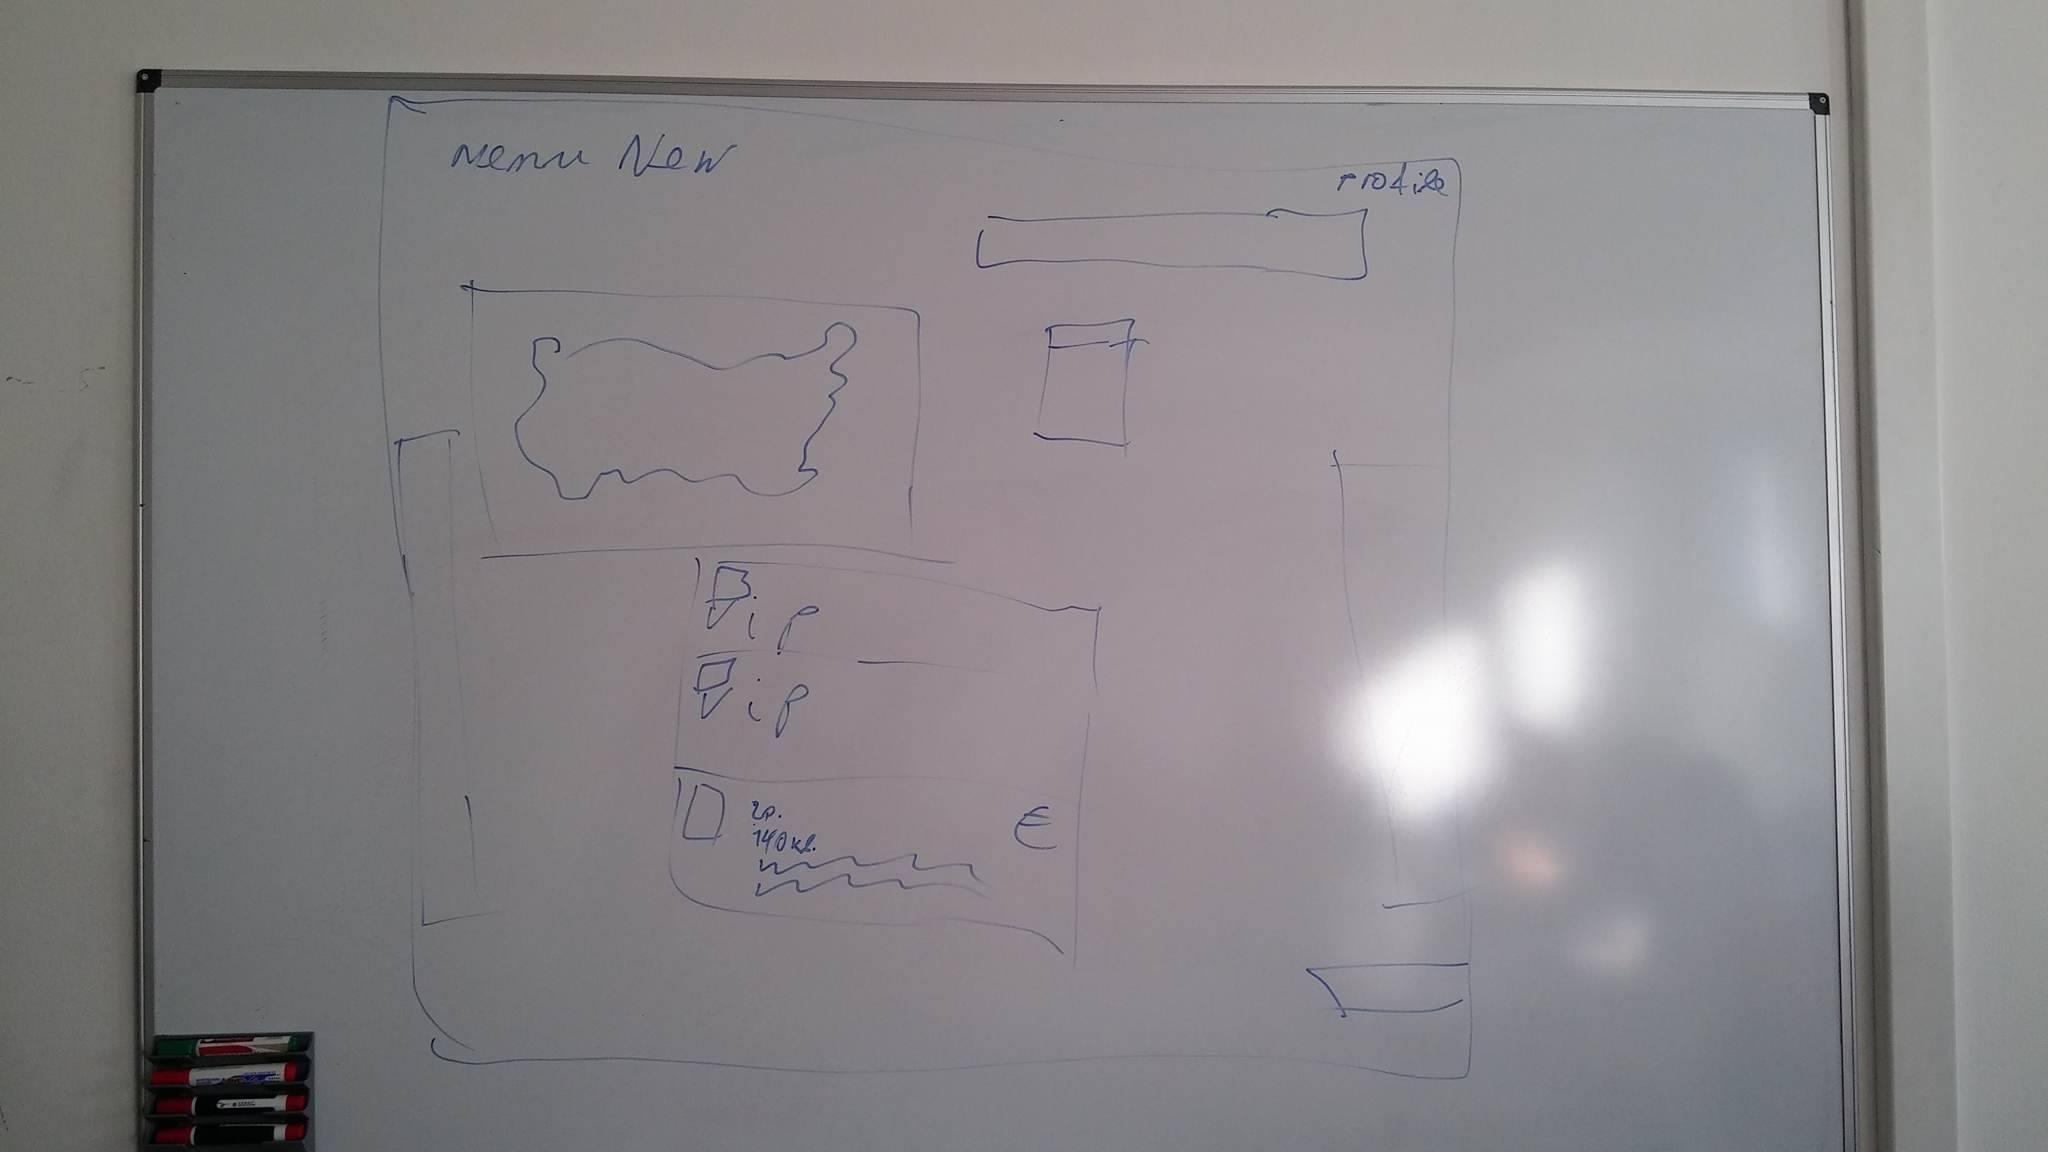 Menu New
Profile
Vip
Vip
гр.
140 кв.
€